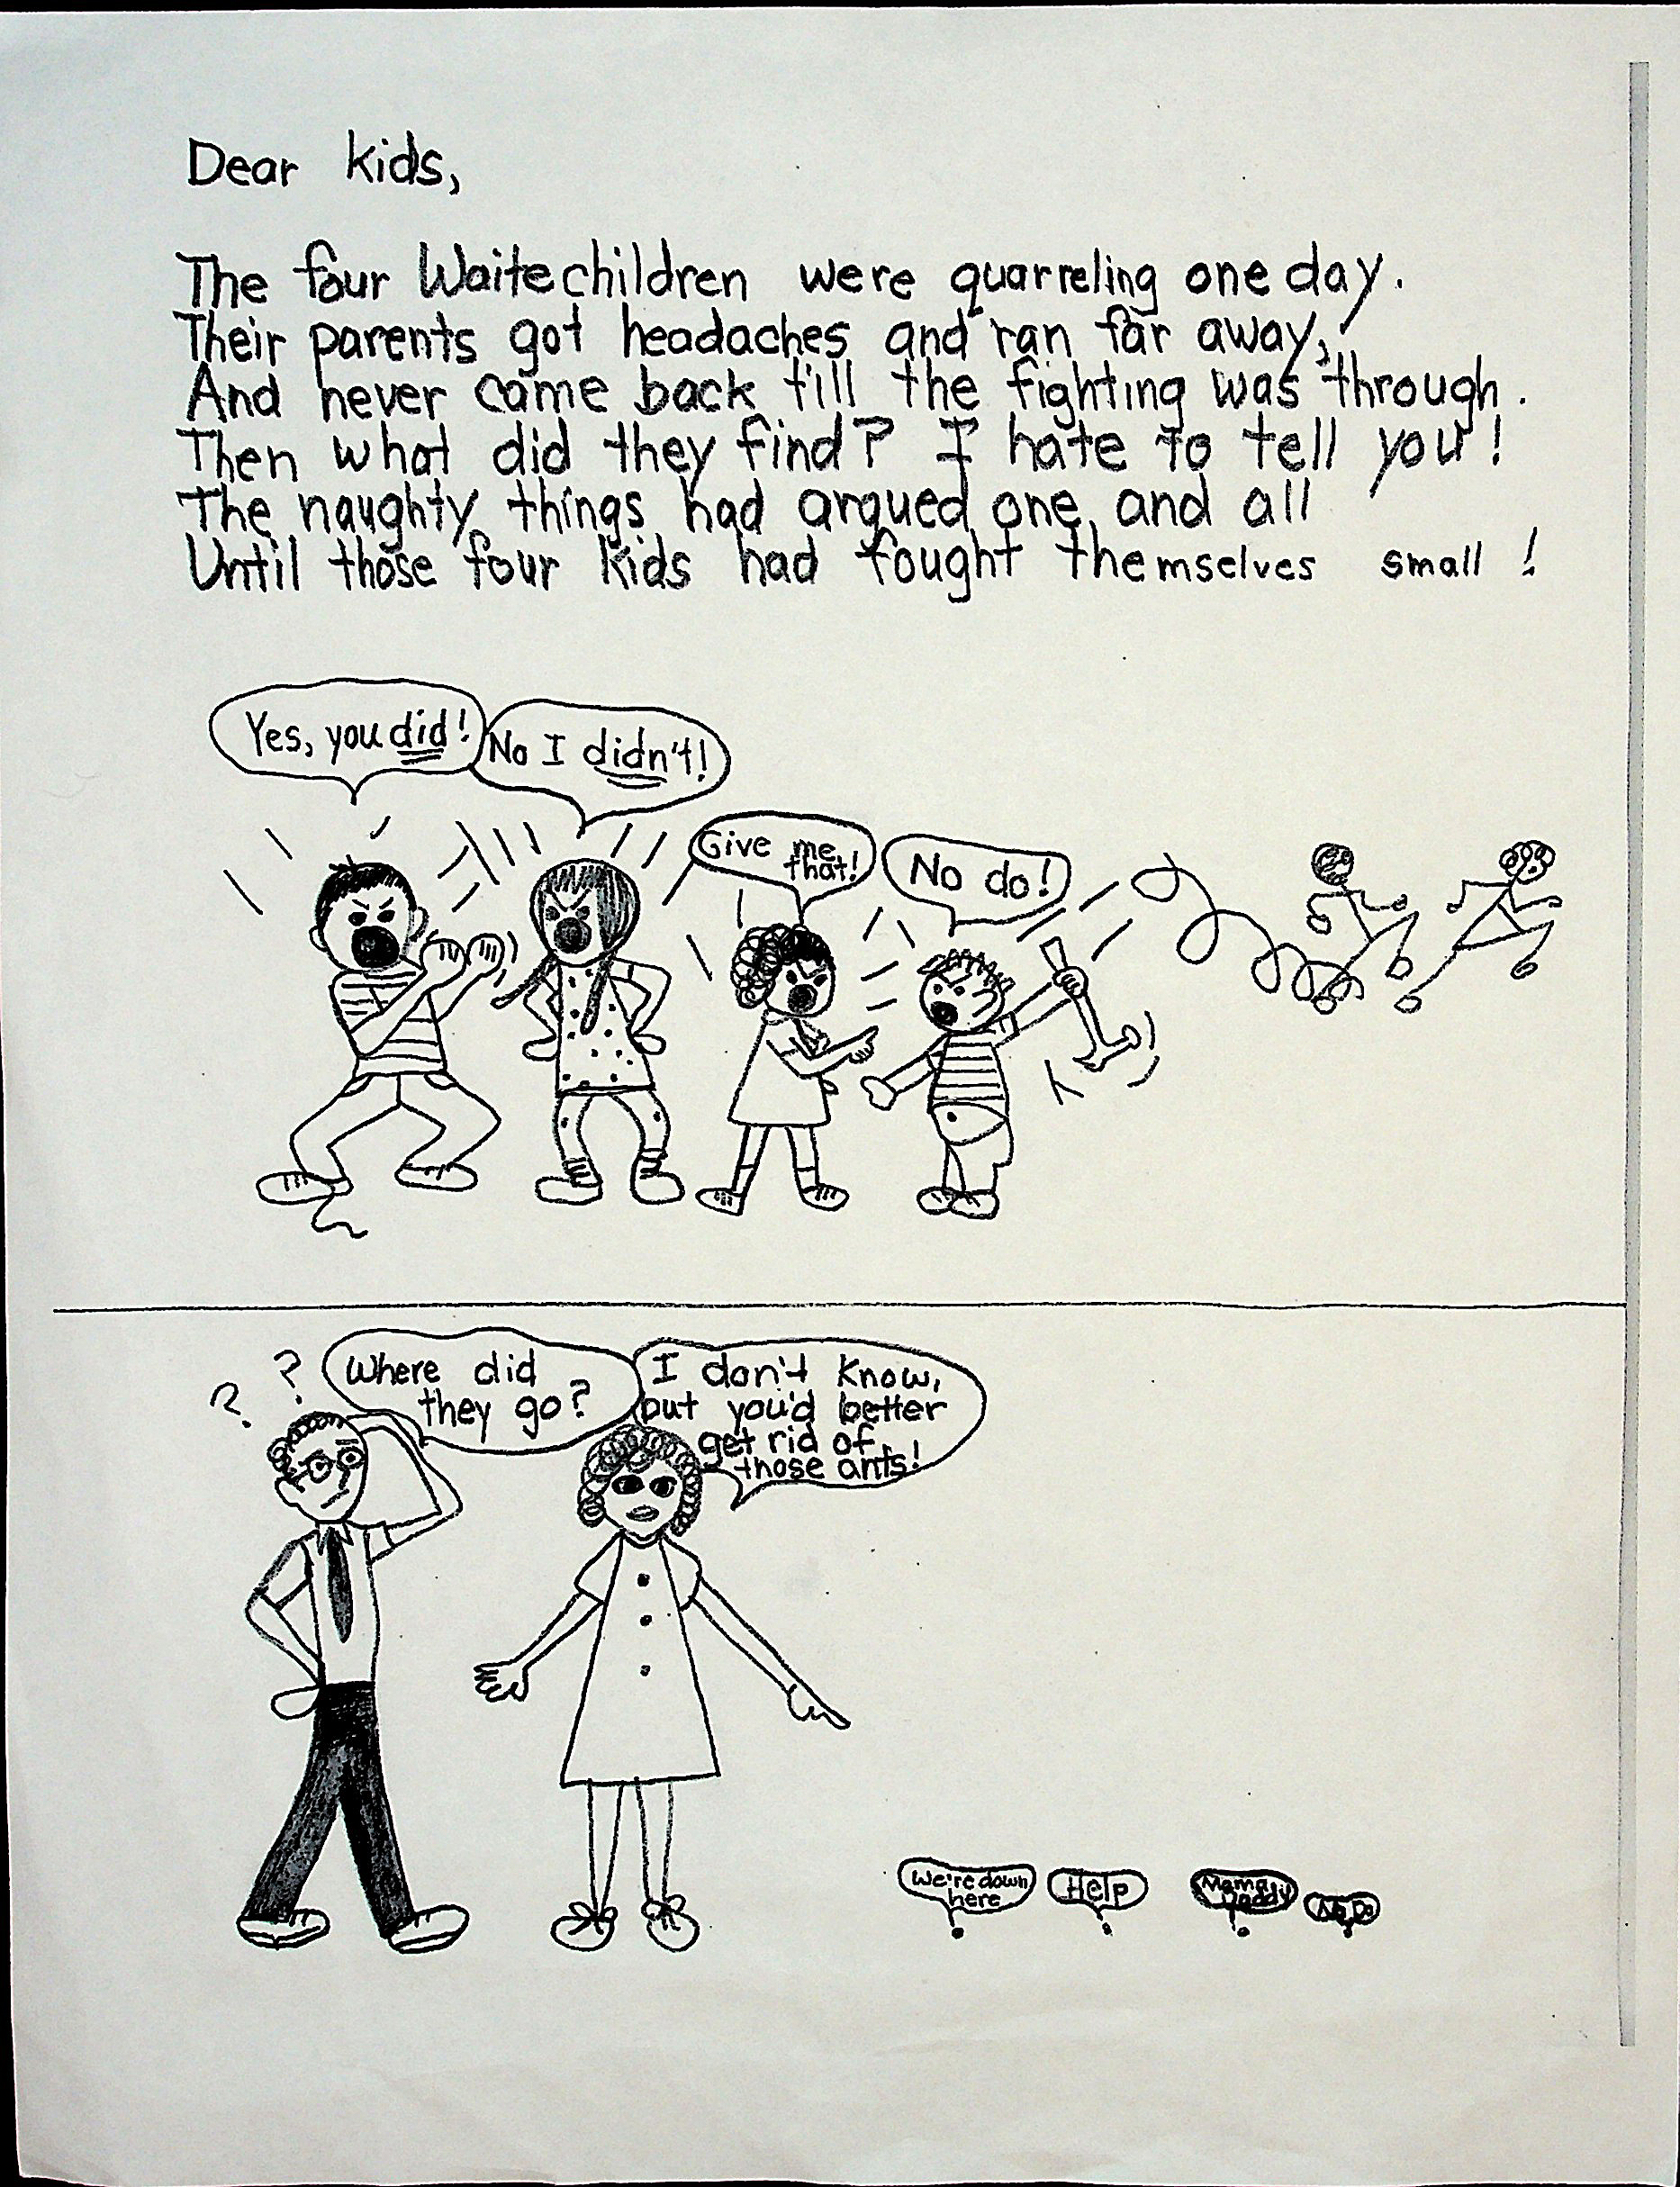 Dear kids,
The four Waite children were quarreling one day.
Their parents got headaches and ran far away,
And never came back till the fighting was through.
Then what did they find? I hate to tell you!
The naughty things had argued one and all
Until those four kids had fought themselves small!
Yes, you did!
No I didn't!
Give me
that!
No do!
?
?
Where did
they go?
I don't know,
but you'd better
get rid of
those ants!
We're down
here
Help
Mama
Daddy
No Do